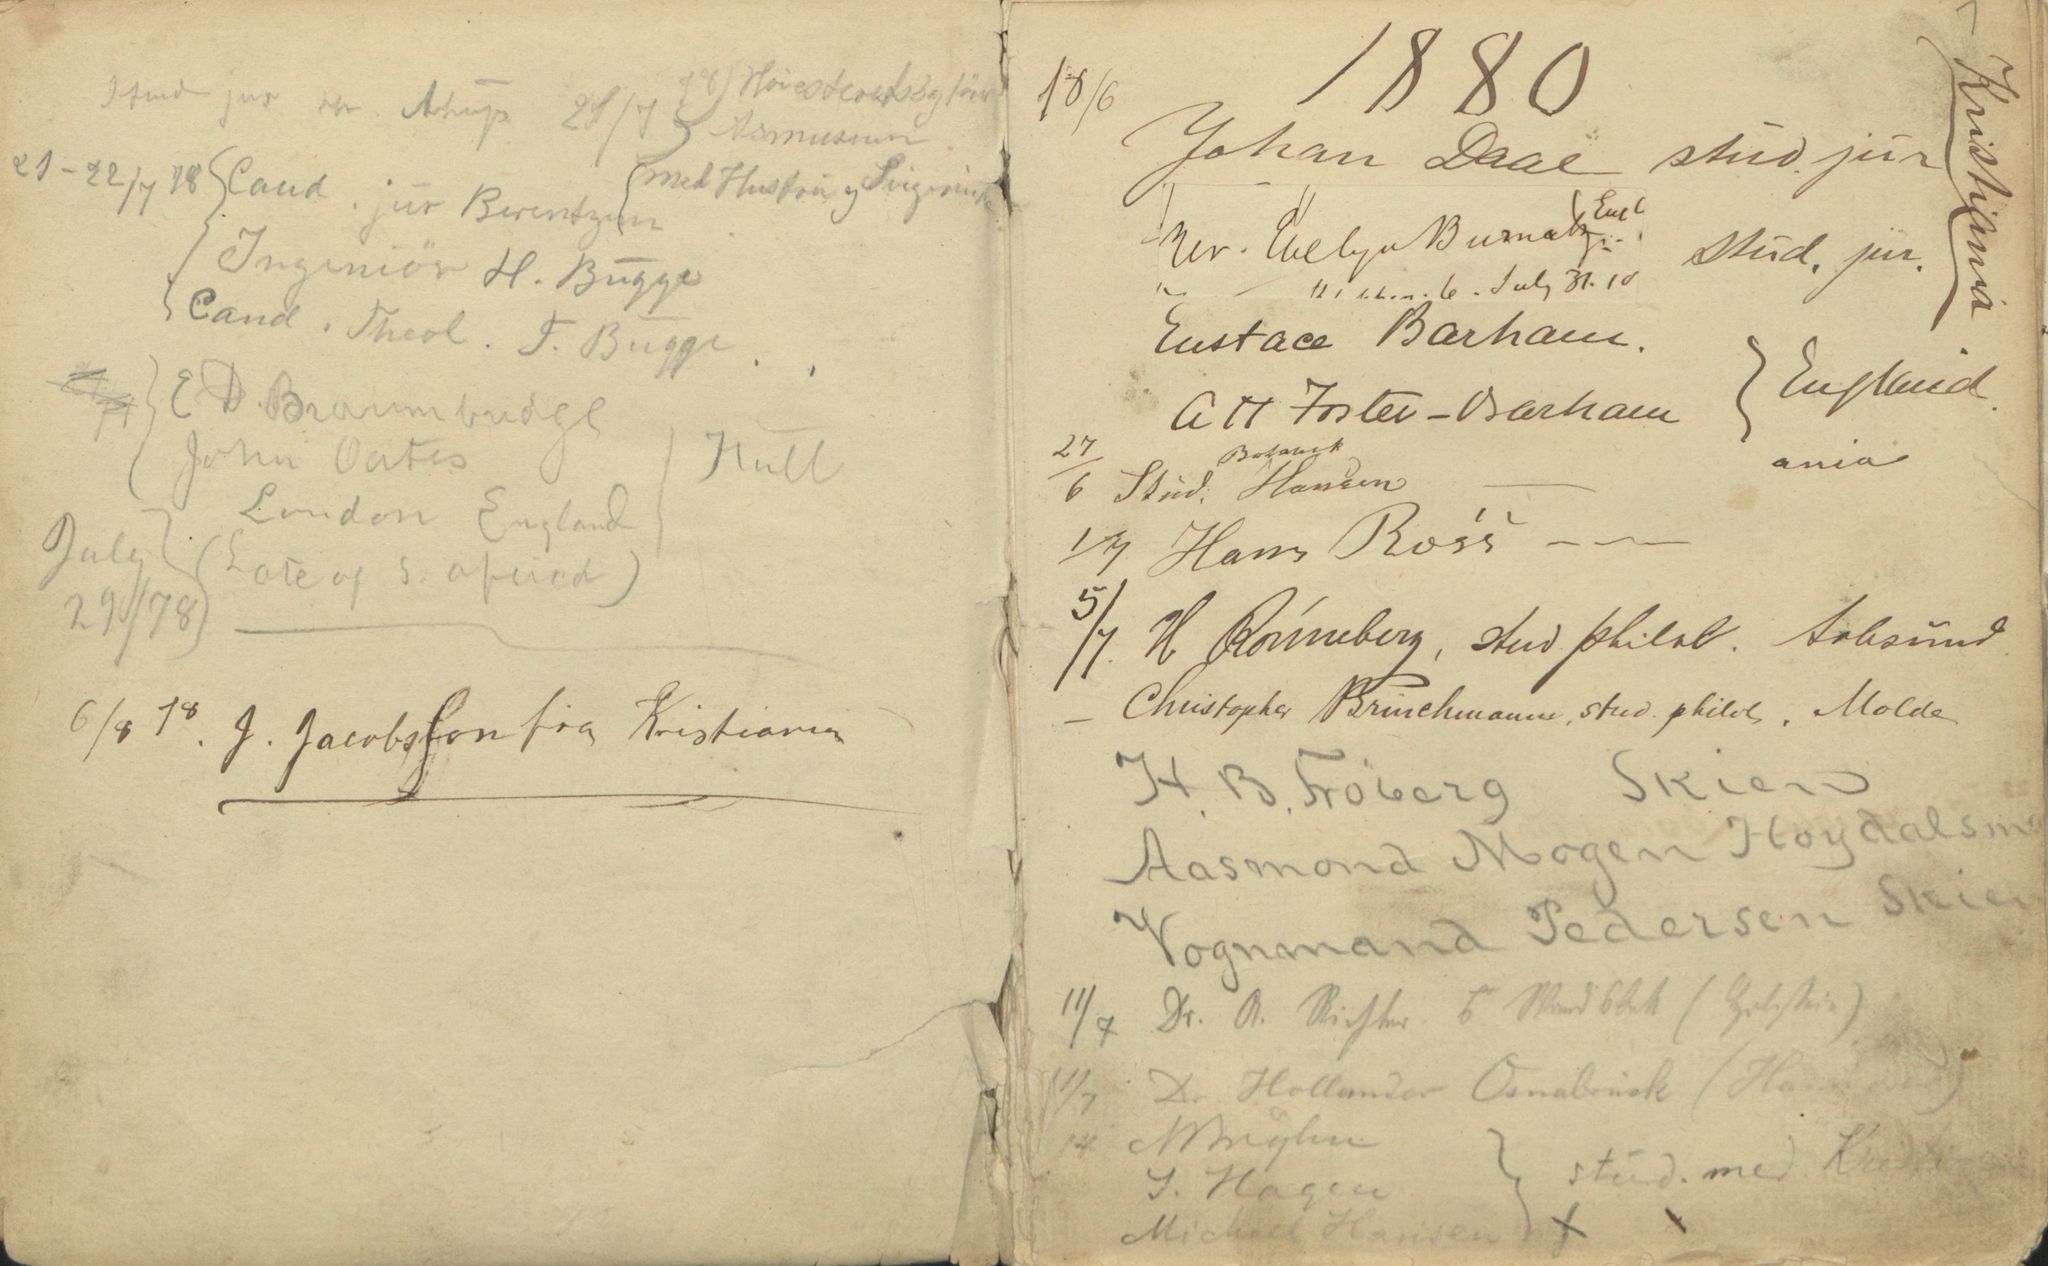 Stud jur Chr. Astrup. 21/7 78 Höiesteretssagförer
Asmussen
21-22/7 78 Cand. jur Berentzen
med Hustru og Svigerinde
Ingeniör H. Bugge
Cand. Theol. F. Bugge.
E D. Braumbridge
John Oates
Hull
London England
(Late of S. africa)
July
29/78
6/8 78. J. Jacobsson fra Kristiania
1880
18/6
Johan Daae stud. jur
Kristiania
Rev. Evelyn Burnaby Engl
July 31. 10
stud. jur.
Eustace Barham.
A H Foster-Barham
England.
ania
27/6 Stud. Botanik Hansen
1/7 Hans Ross
5/7. H Rönneberg, stud philol. Aalesund.
- Christopher Brinchmann, stud. philol. Molde
H. B. Fröberg Skien
Aasmond Mogen Hoydalsmo
Vognmand Pedersen Skien
11/7 Dr. A. Richter Wandsbek (Holstein)
11/7 Dr Hollander Osnabrück (Hannover)
14
S. Hagen
stud. med. Kristiania
Michael Hansen